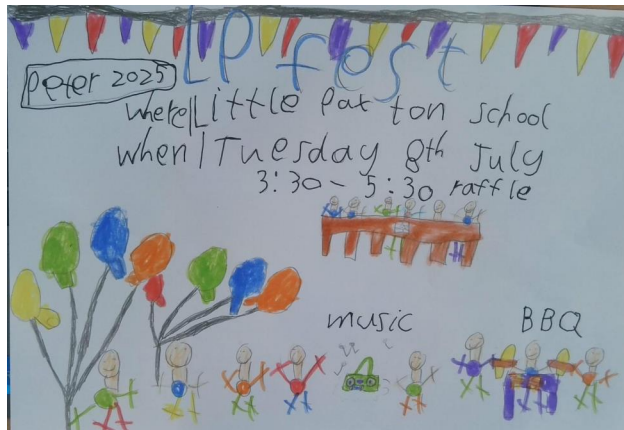 LP fest
Peter 2025
where|Little Pax ton school
when|Tuesday 8th July
3:30-5:30 raffle
music
BBQ